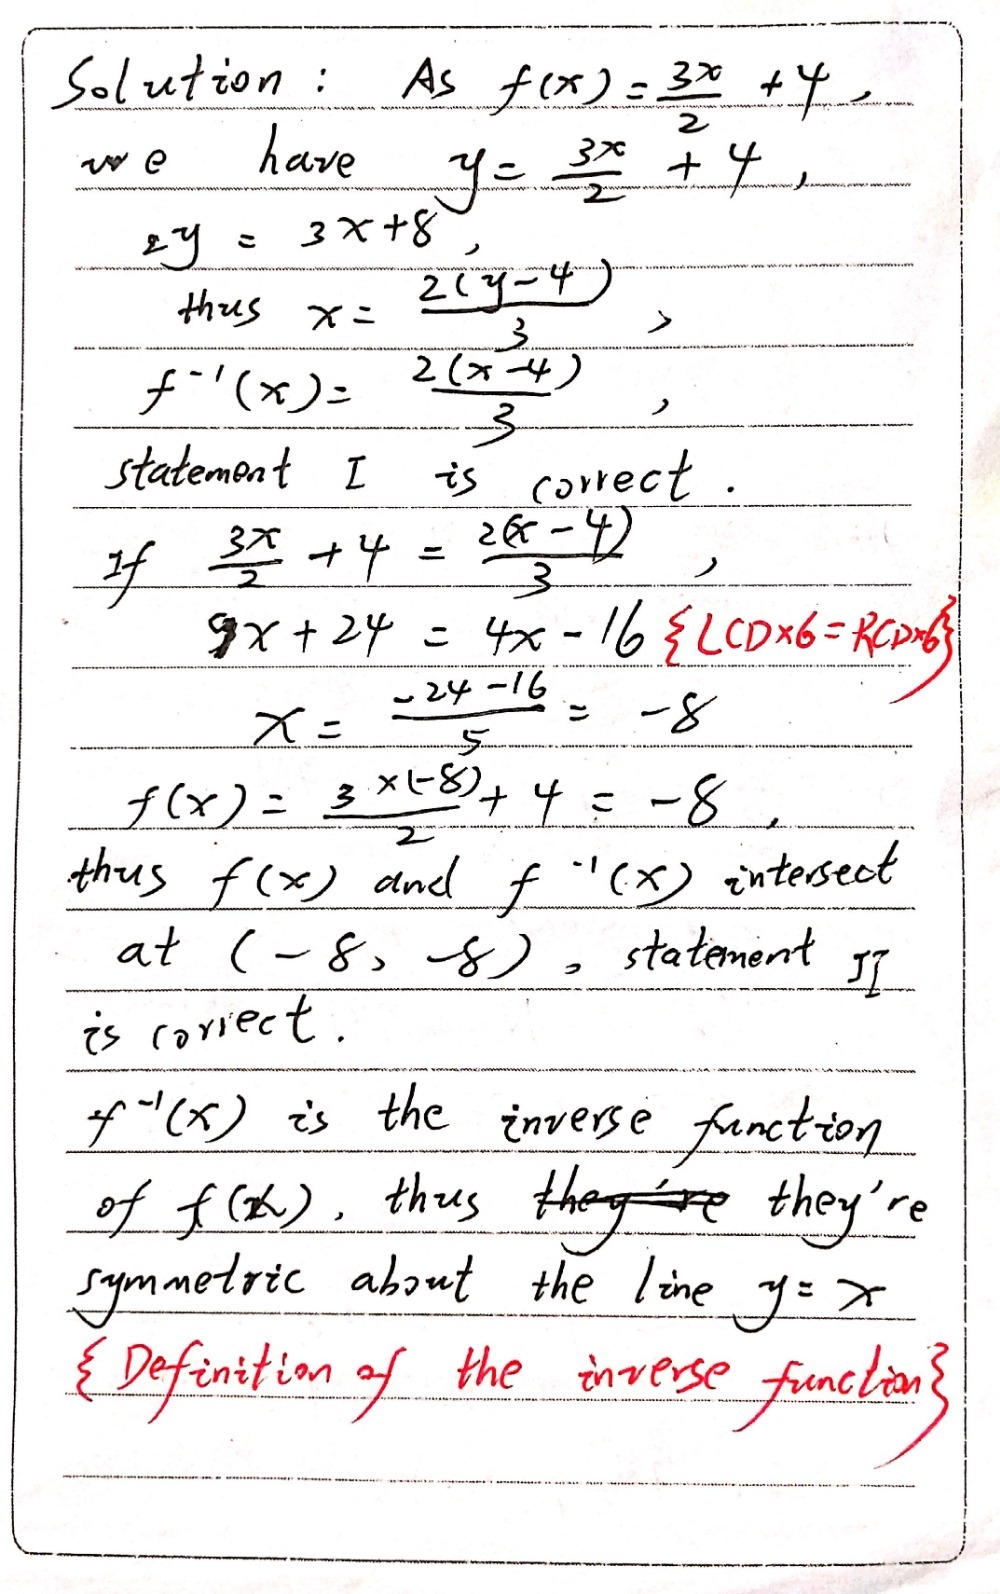 Solution : As f(x) = 3x/2 + 4,
we have y = 3x/2 + 4,
2y = 3x+8,
thus x = 2(y-4)/3,
f⁻¹(x) = 2(x-4)/3,
statement I is correct.
If 3x/2 + 4 = 2(x-4)/3,
9x + 24 = 4x - 16 {LCD×6 = RCD×6}
x = -24-16/5 = -8
f(x) = 3×(-8)/2 + 4 = -8,
thus f(x) and f⁻¹(x) intersect
at (-8, -8), statement II
is correct.
f⁻¹(x) is the inverse function
of f(x), thus they're they're
symmetric about the line y = x
{Definition of the inverse function}